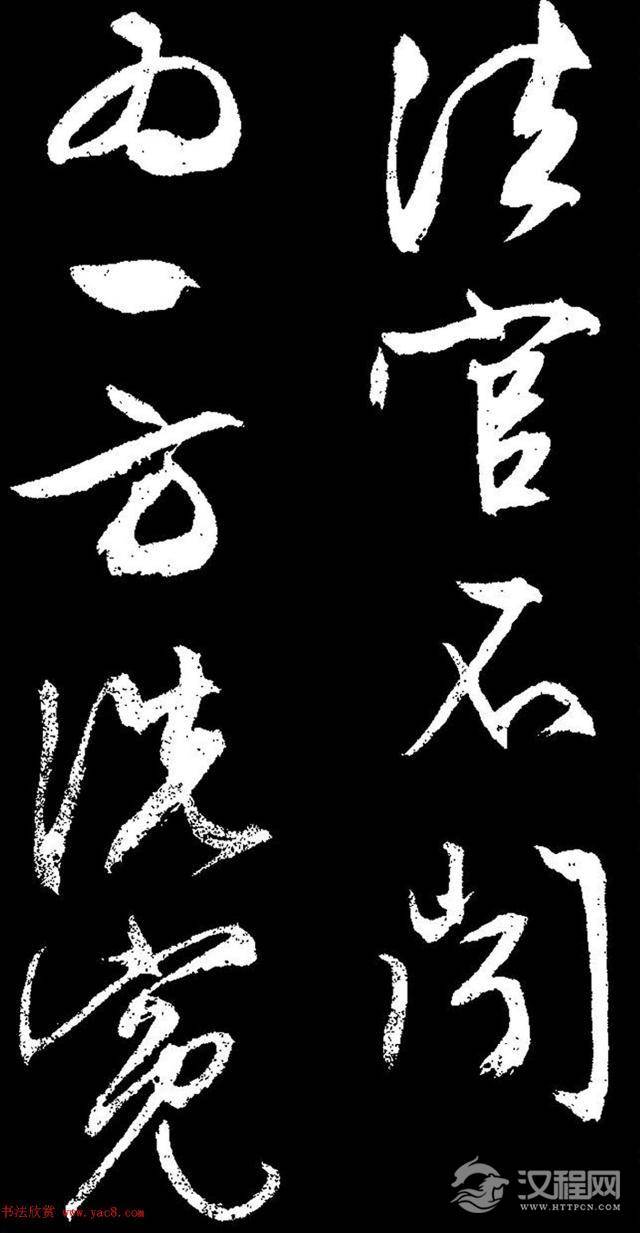 法官不聞
為一方洗寃
书法欣赏 www.yac8.com
汉程网
WWW.HTTPCN.COM